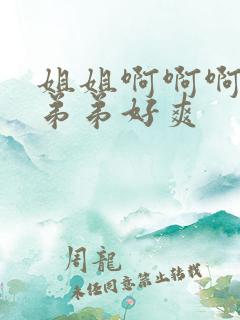 姐姐啊啊啊
弟弟好爽
周龍
未经同意禁止转载